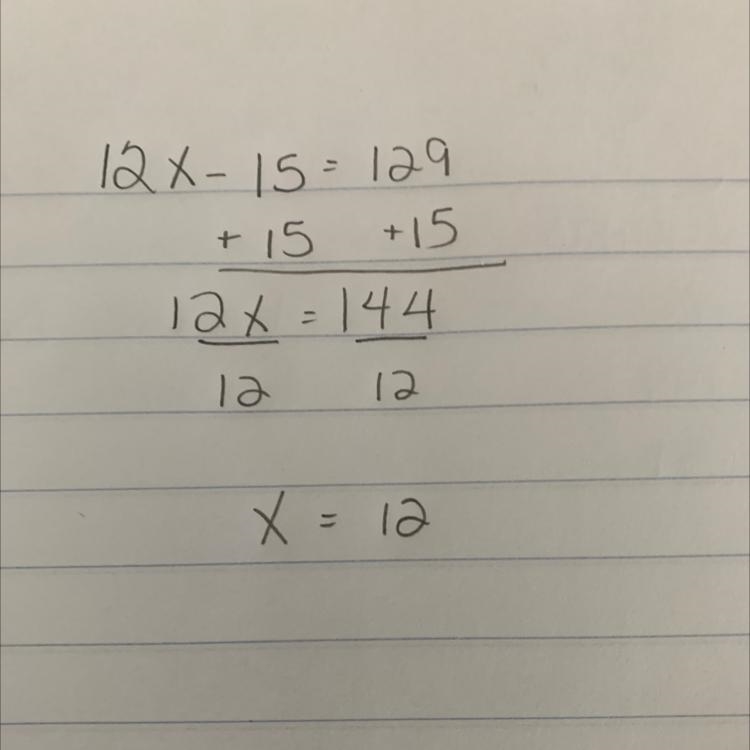 12x - 15 = 129
+ 15 +15
12x = 144
12 12
x = 12